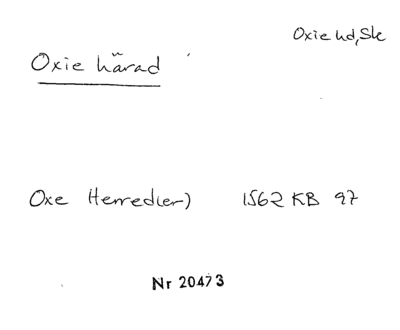 Oxie hd, Sk
Oxie härad
Oxe Herredier) 1562 KB 97
Nr 20473